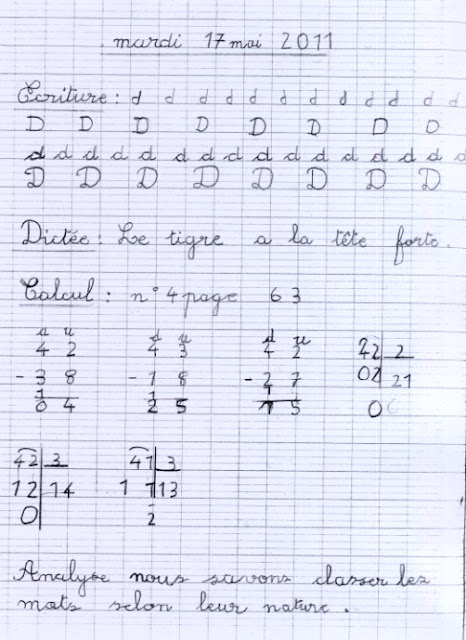 mardi 17 mai 2011
Ecriture : d d d d d d d d d d d d
D D D D D D D D
d d d d d d d d d d d d d d d d
D D D D D D D D
Dictée : Le tigre a la tête forte.
Calcul : n° 4 page 63
d u d u d u
4 2 4 3 4 2 42 2
- 3 8 - 1 8 - 2 7 02 21
1 1 1
0 4 2 5 1 5 0
42 3 41 3
12 14 11 13
0 2
Analyse nous savons classer les
mots selon leur nature.